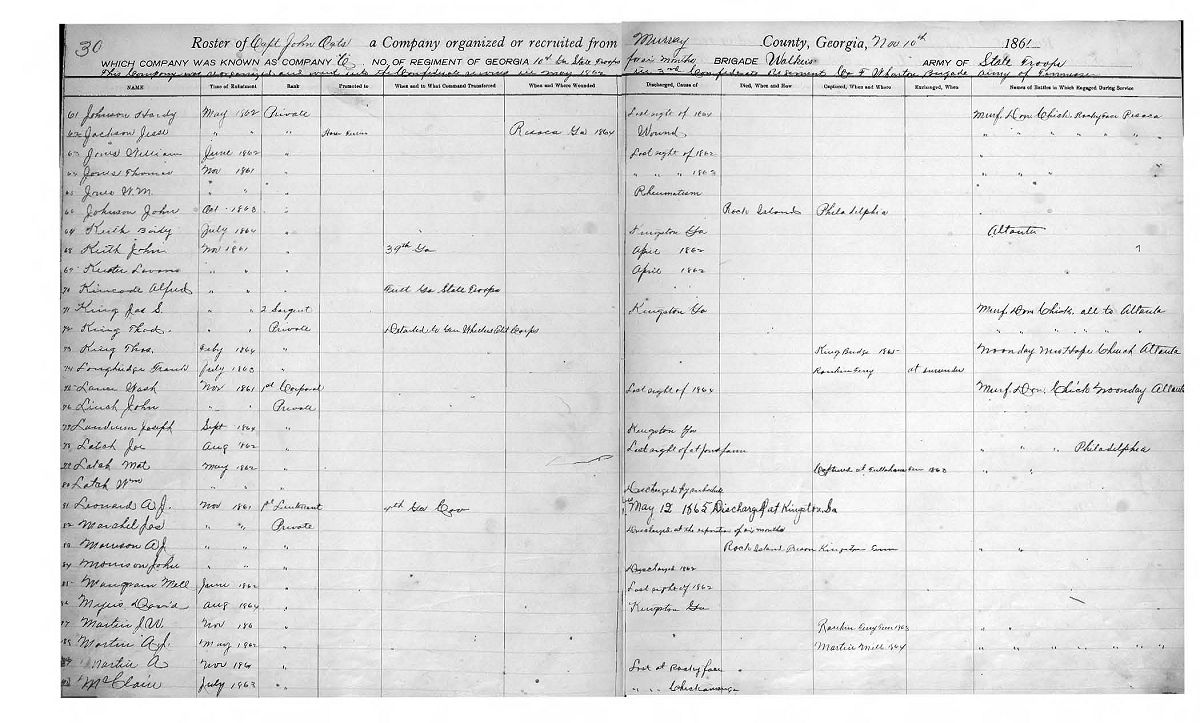 30 Roster of Capt John Oats a Company organized or recruited from Murray County, Georgia, Nov 10th 1861
WHICH COMPANY WAS KNOWN AS COMPANY C NO. OF REGIMENT OF GEORGIA 10th State Troops for six months BRIGADE Walkers ARMY OF State Troops
This Company was reorganized and went into the Confederate service in May 1862 Confederate Regiment Co F Wharton Brigade army of Tennessee
NAME Time of Enlistment Rank Promoted to When and to What Command Transferred When and Where Wounded Discharged, Cause of Died, When and How Captured, When and Where Exchanged, When Names of Battles in Which Engaged During Service
61 Johnson Hardy May 1862 Private Lost sight of 1864 Murf. Don. Chick. Rockyface Resaca
62 Jackson Jesse " " " Resaca Ga 1864 Wound " " " " "
63 Jones William June 1862 " Lost sight of 1862 "
64 Jones Thomas Nov 1861 " " " " 1863 " " "
65 Jones W.M. " " " Rheumatism
66 Johnson John Oct 1863 " Rock Island Philadelphia "
Keith July 1864 " Kingston Ga Atlanta
68 Keith John Nov 1861 " 39th Ga April 1862
69 " " " April 1862
70 Kincade Alfred " " " Ga State Troops
71 King Jas S. " " 2 Sargent Kingston Ga Murf. Don Chick. all to Atlanta
72 King Thod. " " Private Detached to Gen Wheelers Corps " " " " " "
73 King Thos. Feby 1864 " King Bridge 1865 Noonday New Hope Church Atlanta
74 Longbridge Frank July 1863 " at surrender
75 Wash Nov 1861 1st Corporal Lost sight of 1864 Murf. Don. Chick Noonday Atlanta
76 Linch John " " Private
77 Landrum Joseph Sept 1864 " Kingston Ga
78 Latch Joe Aug 1862 " Lost sight of at " " Philadelphia
79 Latch Mat May 1862 " Captured at 1863 " "
80 Latch Wm " " " Discharged
81 Leonard A.J. Nov 1861 1st Lieutenant 4th Ga Cav May 12 1865 Discharged at Kingston, Ga
82 Marshel Jas " " Private Discharged at the expiration of six months
83 Morrison A.J. " " " Rock Island Prison Kingston " "
84 Morrison John " " " Discharged 1862
85 June 1862 " Lost sight of 1862
86 Myers David Aug 1864 " Kingston Ga
87 Martin J.W. Nov 186 " " "
88 Martin A.J. May 1862 " Martin Mill 1864 " " " " " "
89 Martin A Nov 186 " Lost at Rocky face "
90 McClain July 1863 " " " " Chickamauga